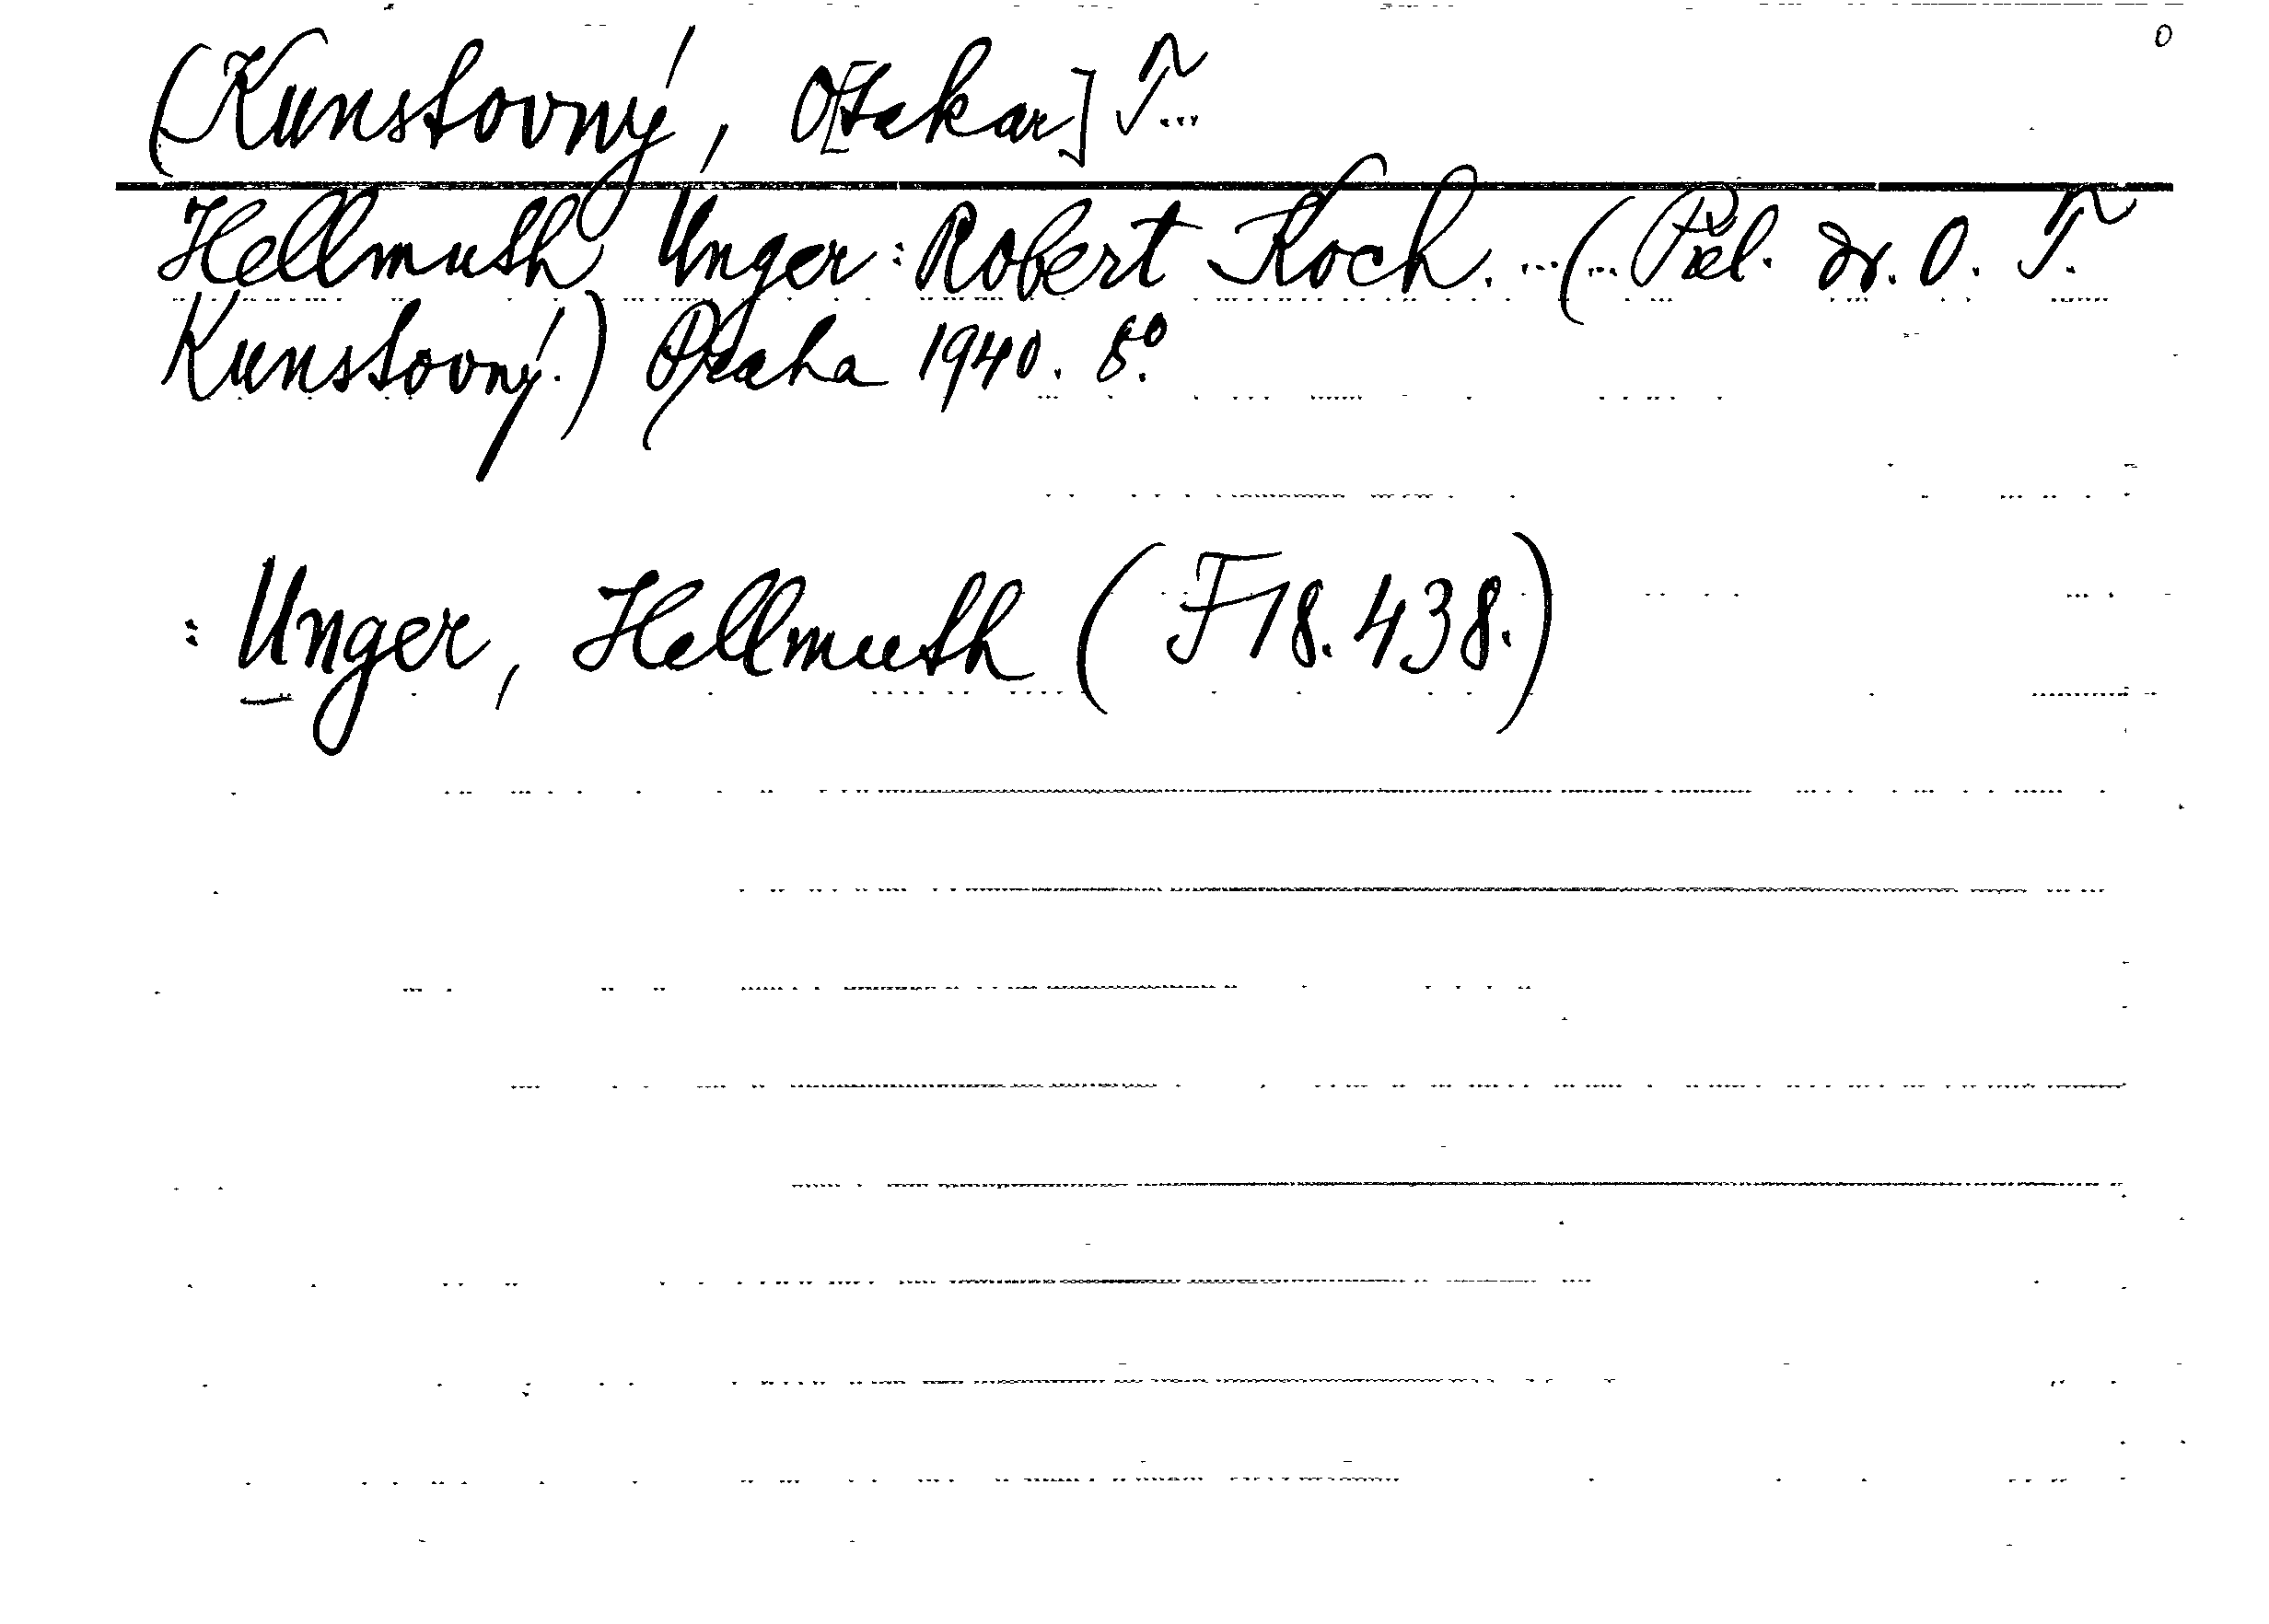 0
(Kunstovný, O[takar] T...
Hellmuth Unger: Robert Koch. ...(... Přel. dr. O. T.
Kunstovný.) Praha 1940. 8.º
: Unger, Hellmuth (F 18.438.)